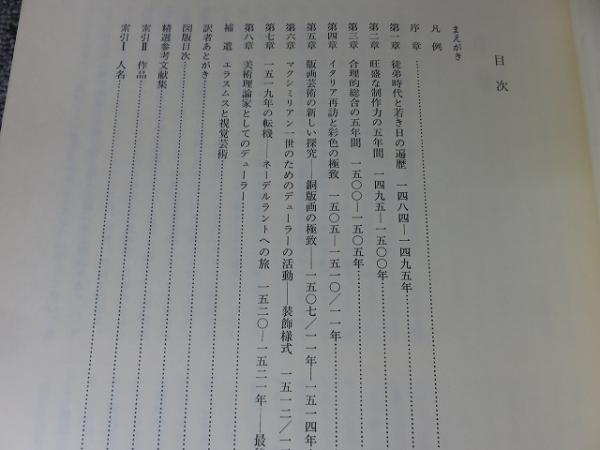 目次
まえがき
凡例
序章
第一章 徒弟時代と若き日の遍歴 一四八四—一四九五年
第二章 旺盛な制作力の五年間 一四九五—一五〇〇年
第三章 合理的総合の五年間 一五〇〇—一五〇五年
第四章 イタリア再訪と彩色の極致 一五〇五—一五一〇/一一年
第五章 版画芸術の新しい探究——銅版画の極致——一五〇七/一一年—一五一四年
第六章 マクシミリアン一世のためのデューラーの活動——装飾様式 一五一二/一
第七章 一五一九年の転機——ネーデルラントへの旅 一五二〇—一五二一年——最後
第八章 美術理論家としてのデューラー
補遺 エラスムスと視覚芸術
訳者あとがき
図版目次
精選参考文献集
索引Ⅱ 作品
索引Ⅰ 人名